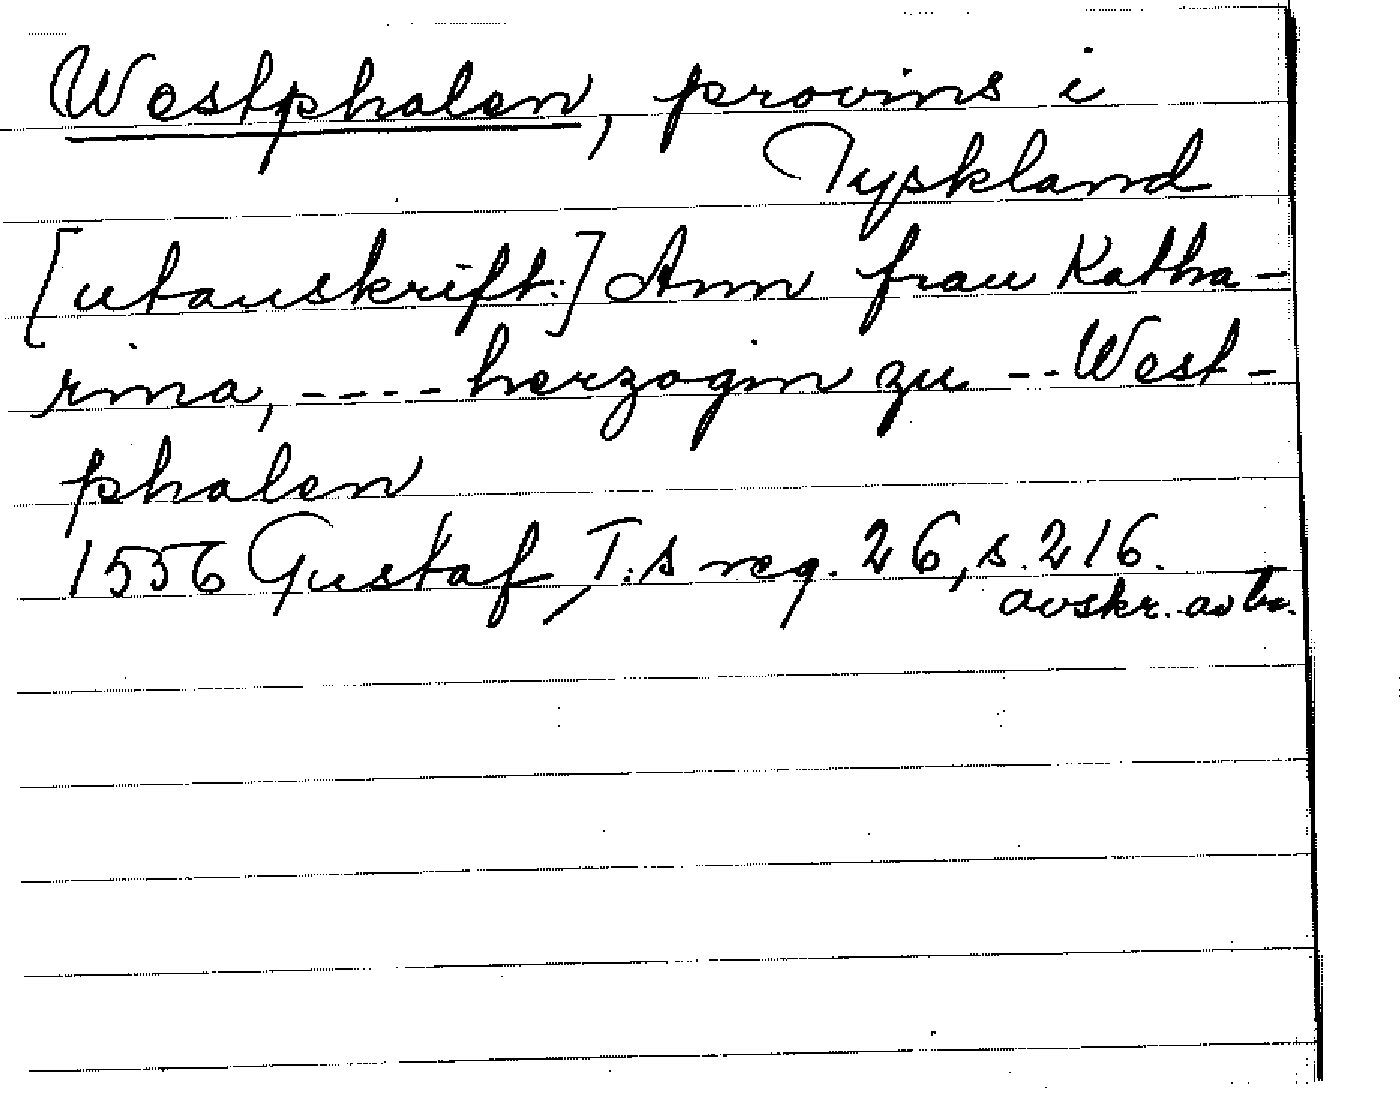 Westphalen, provins i
Tyskland
[utanskrift:] Ann frau Katha-
rina, ---- herzogin zu --West-
phalen
1556 Gustaf I:s reg. 26, s. 216.
avskr. avtr.